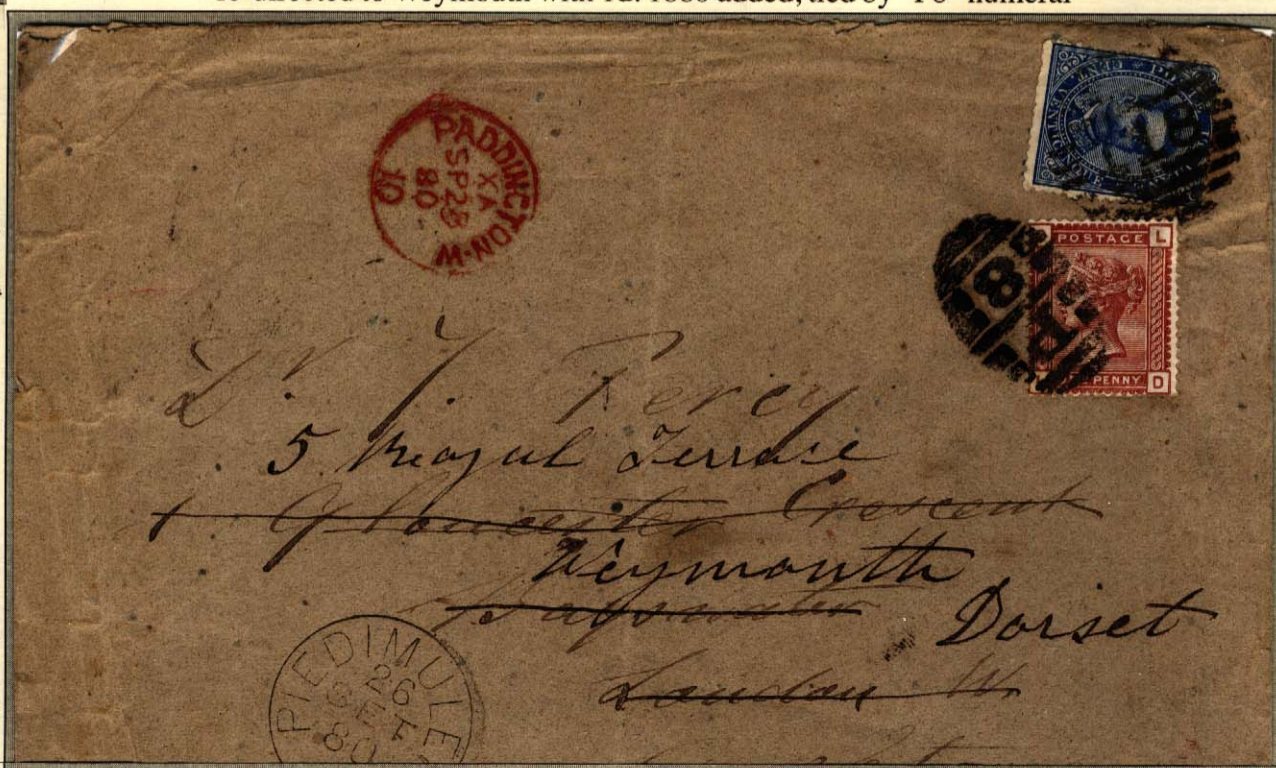 re-directed to Weymouth with 1d. 1880 added, tied by "P8" numeral
PADDINGTON·W
XA
SP28
80
10
POSTE
POSTAGE L
8
PENNY D
Dr. J. Percy
5 Royal Terrace
1 Gloucester Crescent
Weymouth
Bayswater
Dorset
London W.
PIEDIMULE
26
SET
80